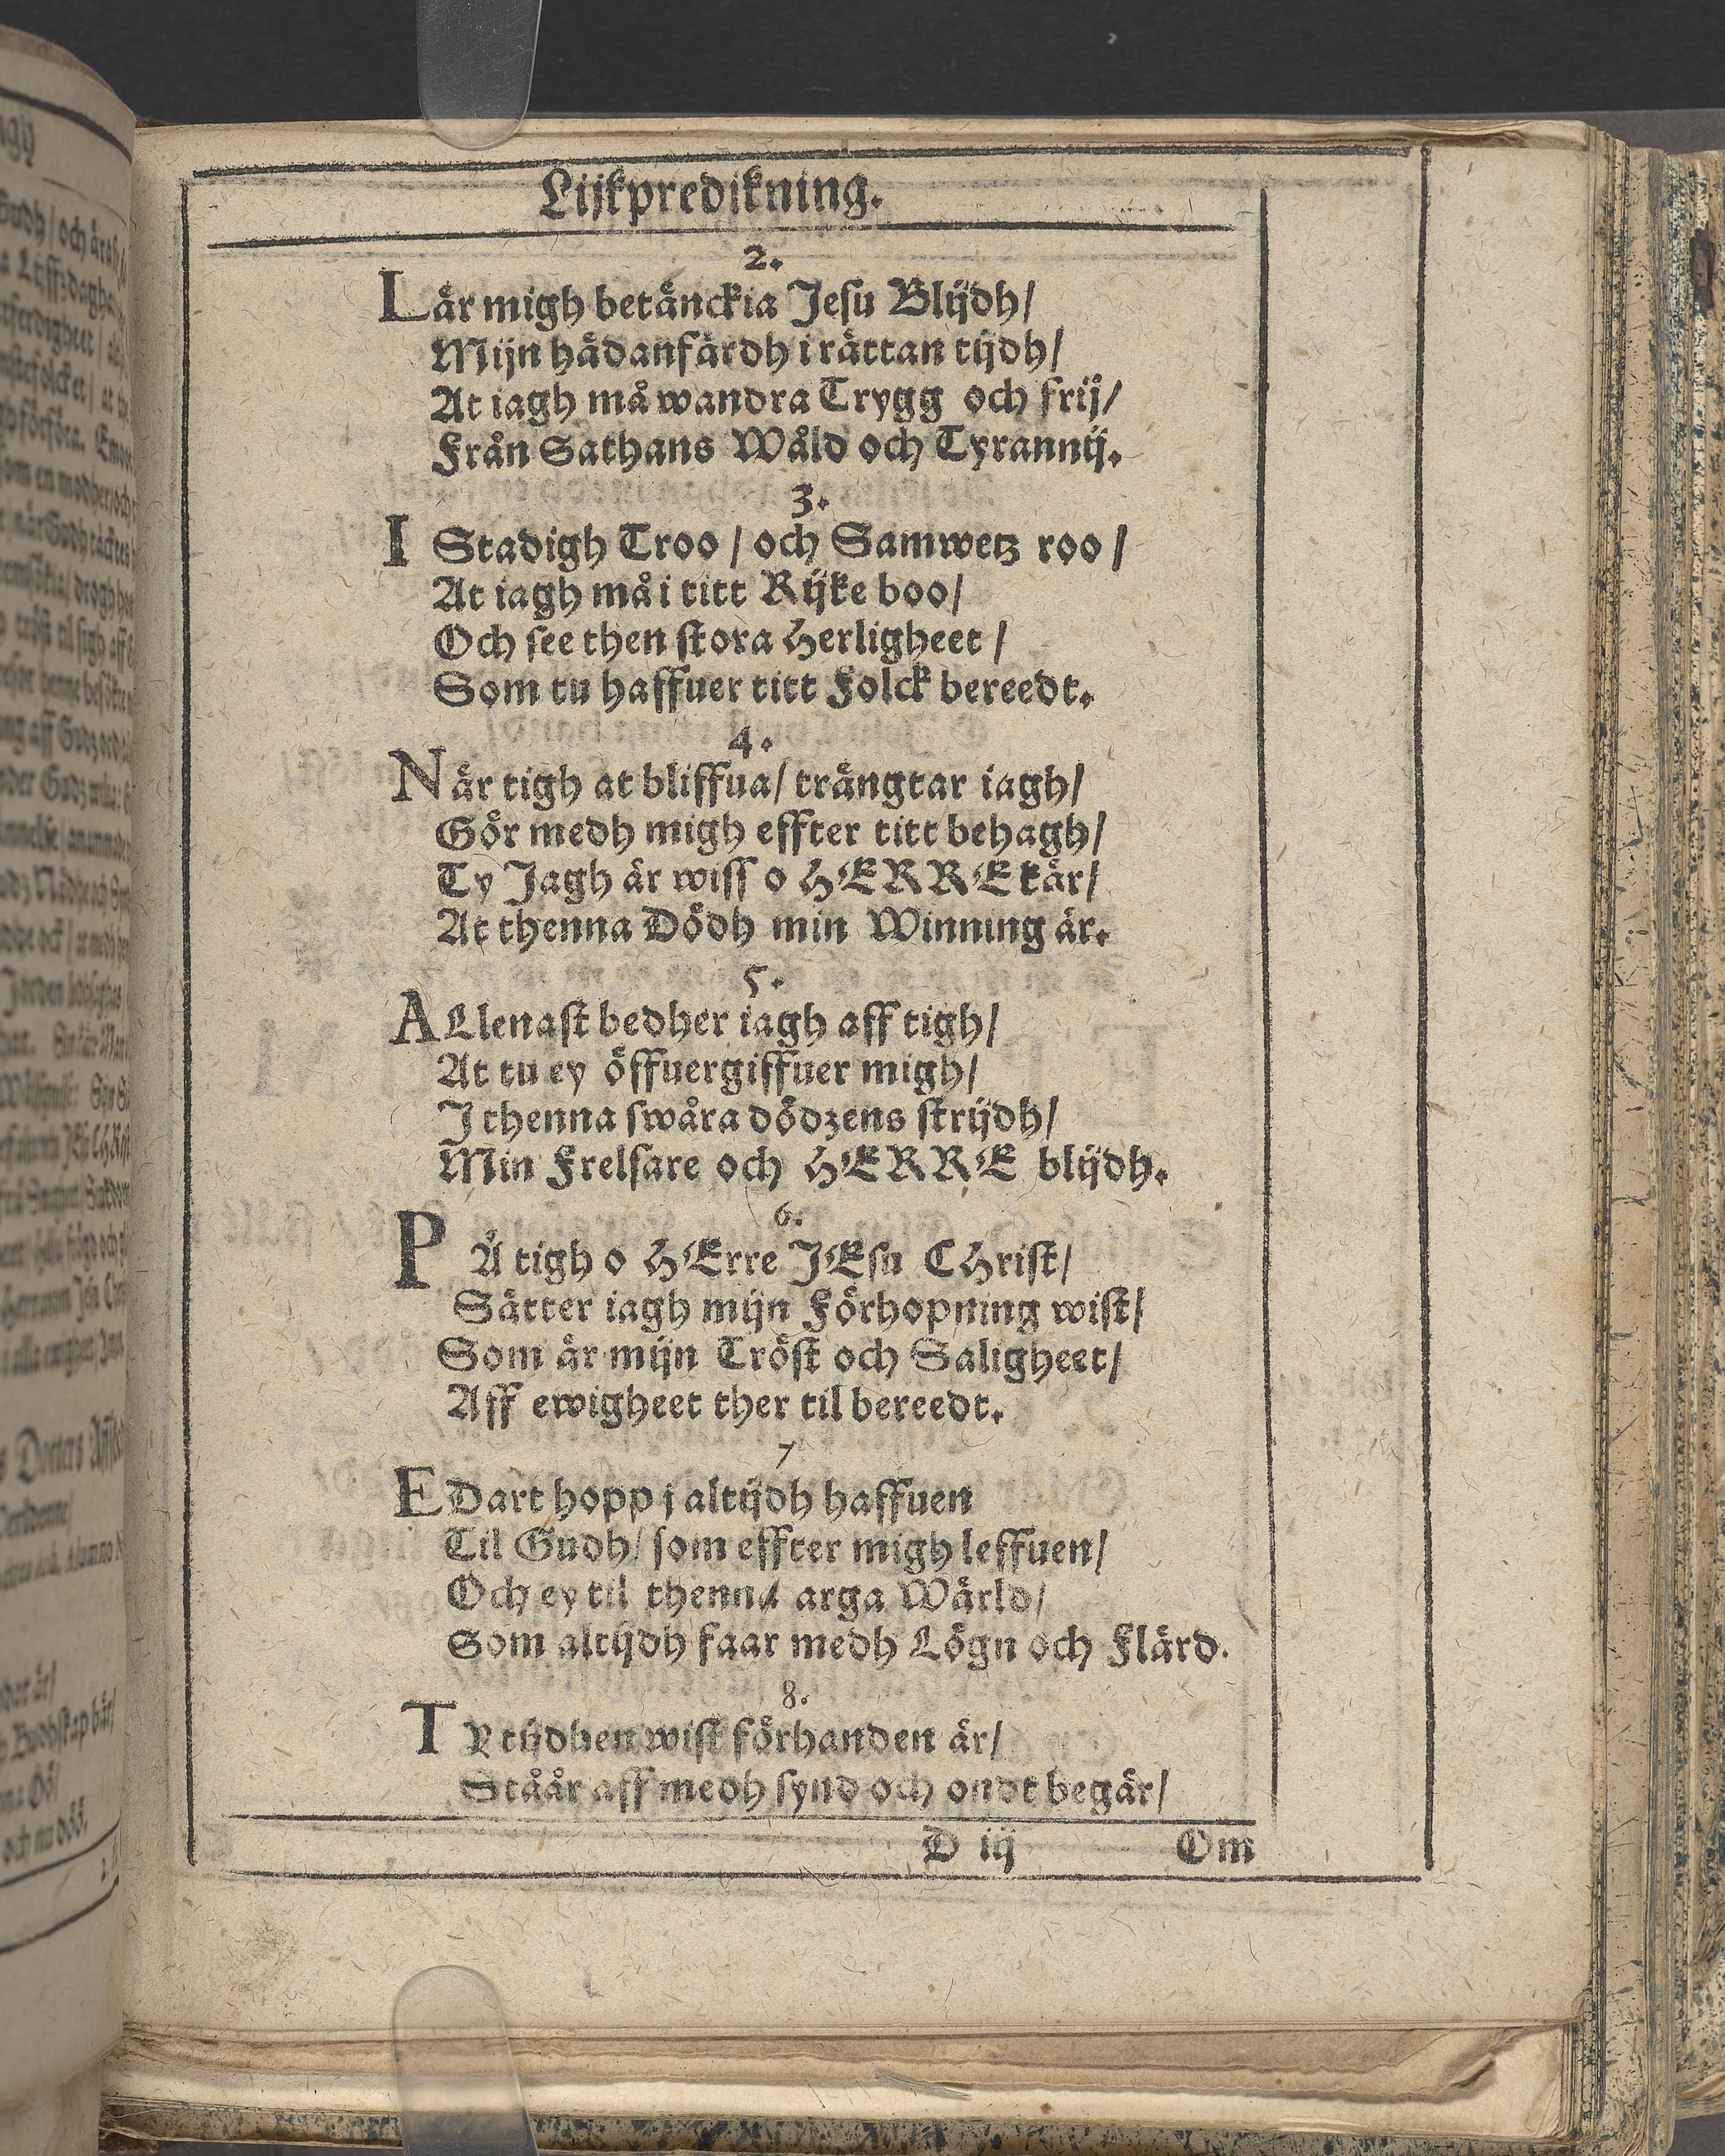 Lijkpredikning.
2.
Lär migh betänckia Jesu Blijdh/
Mijn hädanfärdh i rättan tijdh/
At iagh må wandra Trygg och frij/
Från Sathans Wåld och Tyrannij.
3.
I Stadigh Troo / och Samwetz roo /
At iagh må i titt Rijke boo/
Och see then stora Herligheet /
Som tu haffuer titt Folck bereedt.
4.
När tigh at bliffua/ trängtar iagh/
Gör medh migh effter titt behagh/
Ty Jagh är wiss o HERRE kär/
At thenna Dödh min Winning är.
5.
ALlenast bedher iagh aff tigh/
At tu ey öffuergiffuer migh/
J thenna swåra dödzens strijdh/
Min Frelsare och HERRE blijdh.
6.
PÅ tigh o HErre JEsu CHrist/
Sätter iagh mijn Förhopning wist/
Som är mijn Tröst och Saligheet/
Aff ewigheet ther til bereedt.
7
EDart hopp j altijdh haffuen
Til Gudh/ som effter migh leffuen/
Och ey til thenna arga Wärld/
Som altijdh faar medh Lögn och Flärd.
8.
TY tijdhen wist förhanden är/
Ståår aff medh synd och ondt begär/
D iij Om